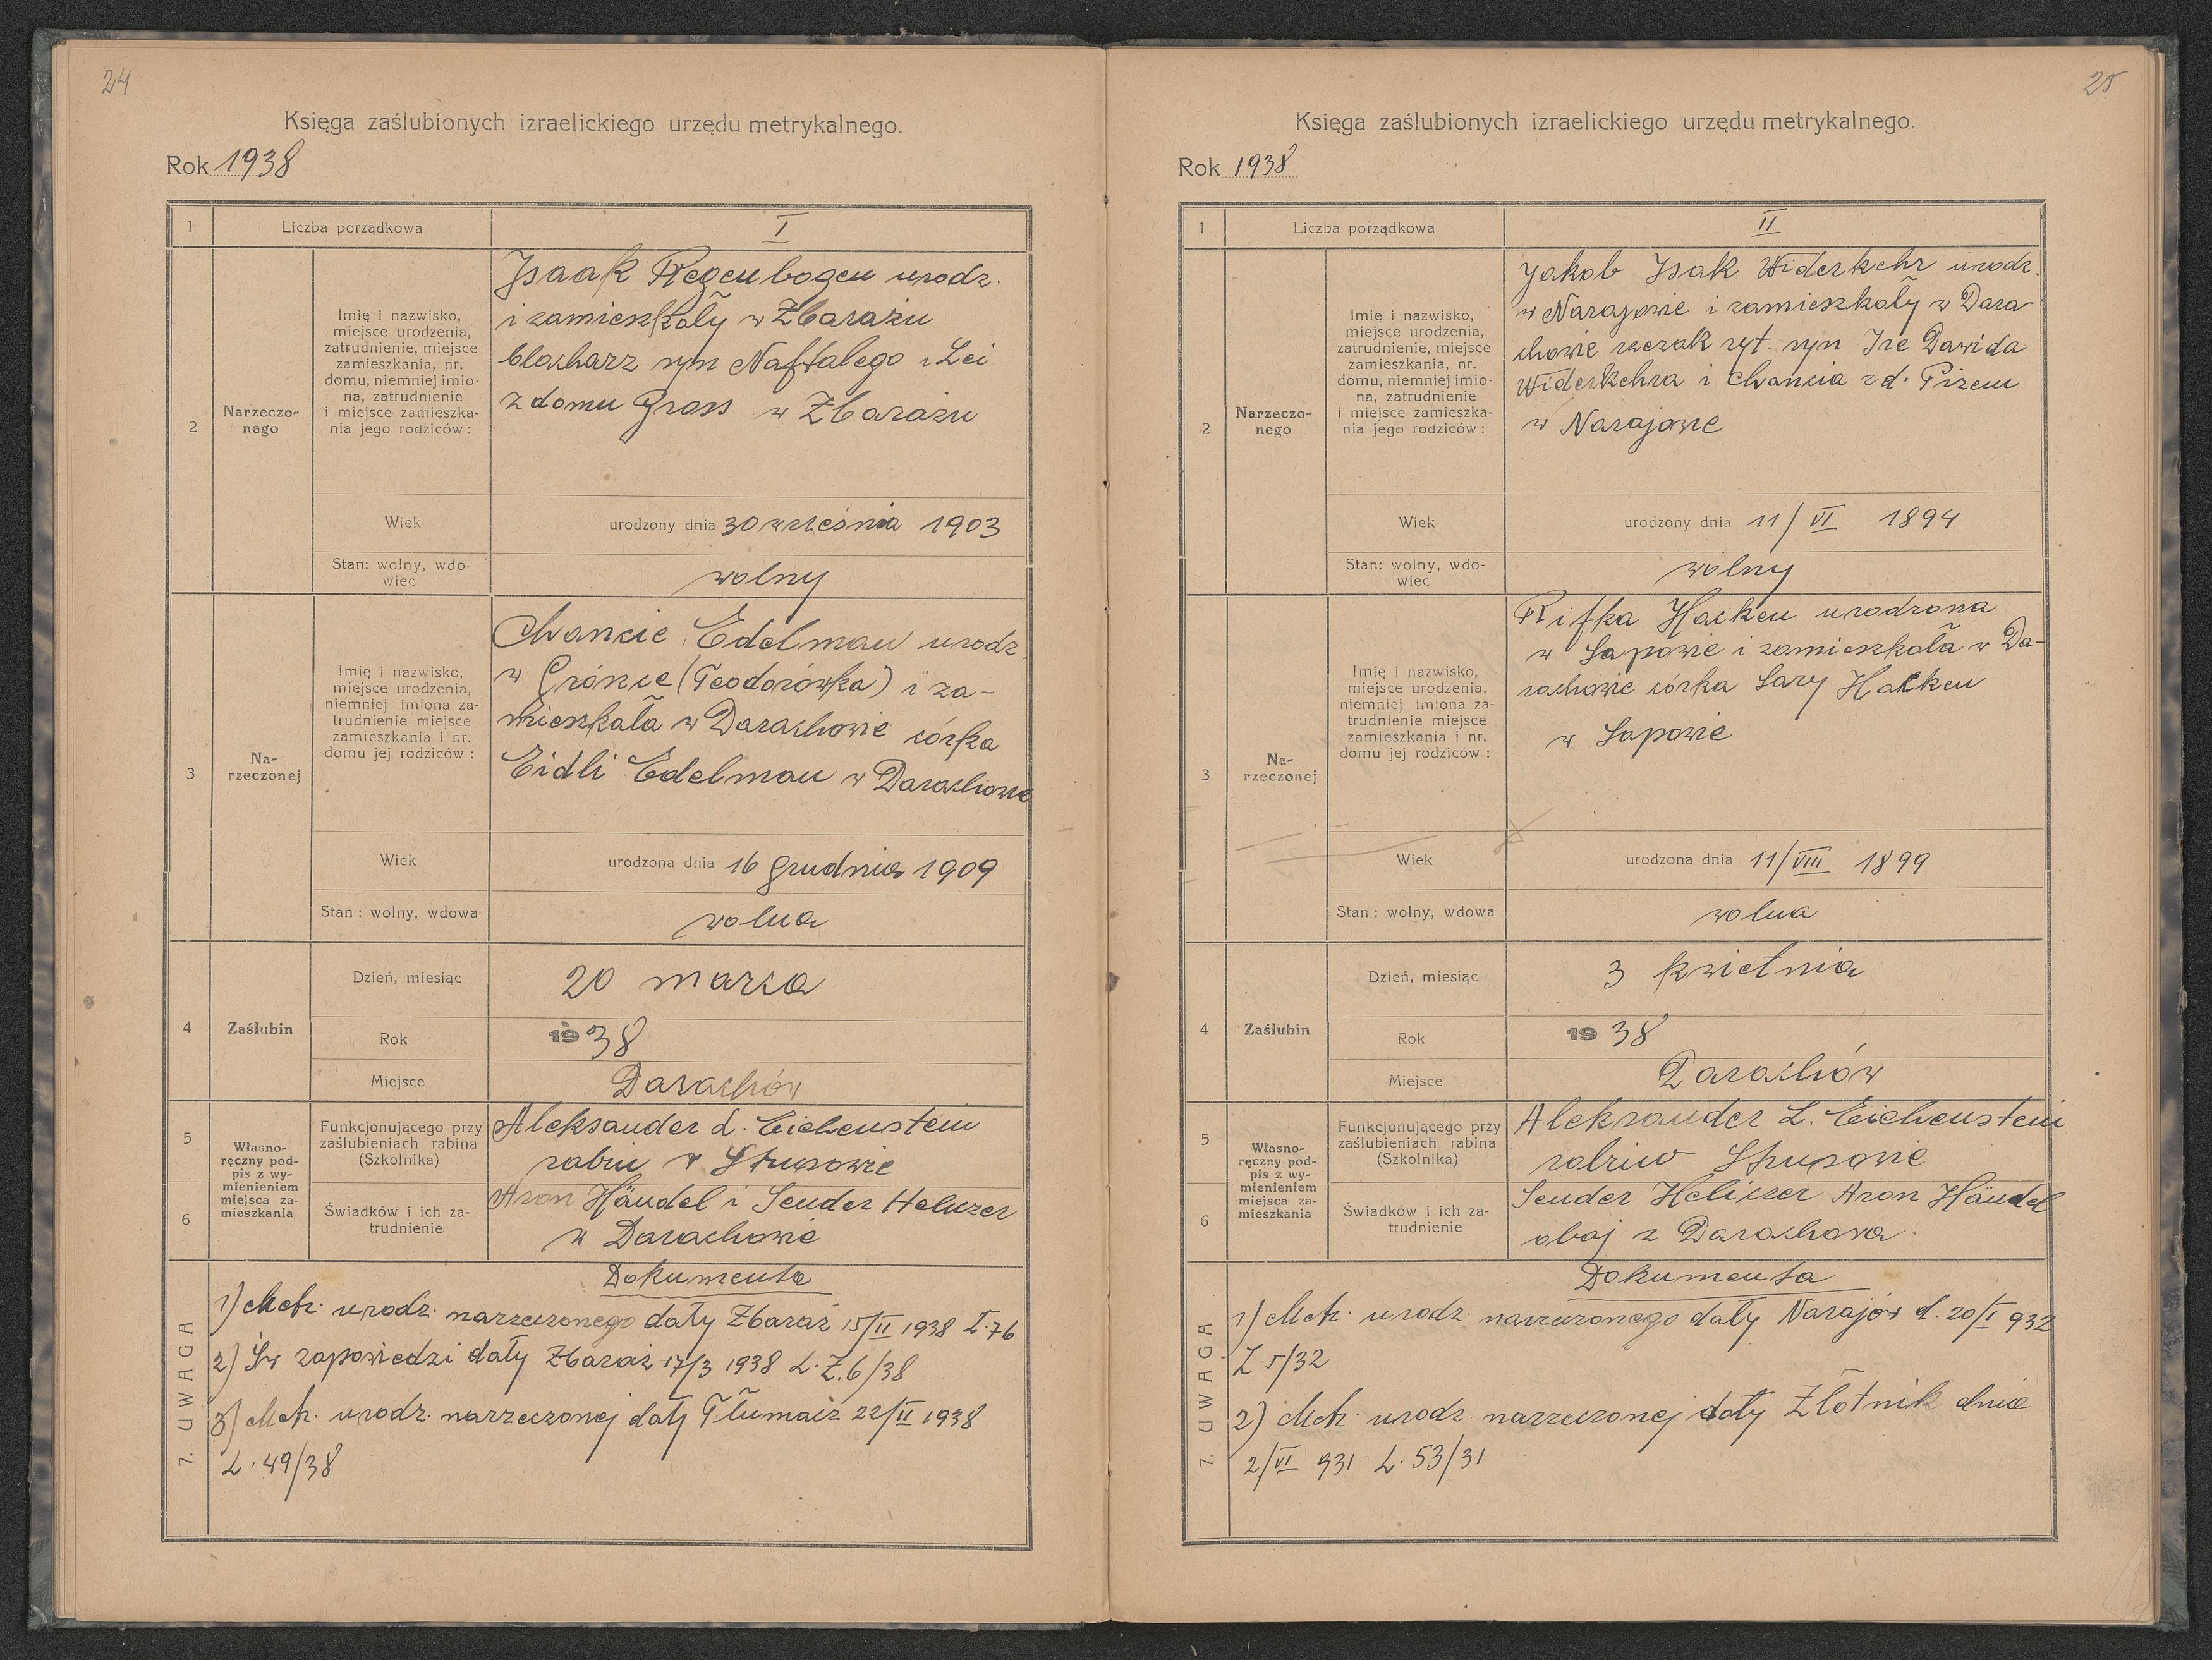 24
Księga zaślubionych izraelickiego urzędu metrykalnego.
Rok 1938
1
Liczba porządkowa
I
2
Narzeczo-
nego
Imię i nazwisko,
miejsce urodzenia,
zatrudnienie, miejsce
zamieszkania, nr.
domu, niemniej imio-
na, zatrudnienie
i miejsce zamieszka-
nia jego rodziców:
Isaak Regenbogen urodz.
i zamieszkały w Zbarażu
blacharz syn Naftalego i Lei
z domu Gross w Zbarażu
Wiek
urodzony dnia 30 września 1903
Stan: wolny, wdo-
wiec
wolny
3
Na-
rzeczonej
Imię i nazwisko,
miejsce urodzenia,
niemniej imiona za-
trudnienie miejsce
zamieszkania i nr.
domu jej rodziców:
Chancie Edelman urodz.
w (Teodorówka) i za-
mieszkała w Darachowie córka
Eidli Edelman w Darachowie
Wiek
urodzona dnia 16 grudnia 1909
Stan: wolny, wdowa
wolna
4
Zaślubin
Dzień, miesiąc
20 marca
Rok
1938
Miejsce
Darachów
5
6
Własno-
ręczny pod-
pis z wy-
mienieniem
miejsca za-
mieszkania
Funkcjonującego przy
zaślubieniach rabina
(Szkolnika)
Aleksander L. Eichenstein
rabin w Strusowie
Świadków i ich za-
trudnienie
Aron Händel i Sender Heliczer
w Darachowie
7. UWAGA
Dokumenta
1) Metr. urodz. narzeczonego daty Zbaraż 15/II 1938 L. 76
2) Św zapowiedzi daty Zbaraż 17/3 1938 L. Z. 6/38
3) Metr. urodz. narzeczonej daty Tłumacz 22/II 1938
L. 49/38
25
Księga zaślubionych izraelickiego urzędu metrykalnego.
Rok 1938
1
Liczba porządkowa
II
2
Narzeczo-
nego
Imię i nazwisko,
miejsce urodzenia,
zatrudnienie, miejsce
zamieszkania, nr.
domu, niemniej imio-
na, zatrudnienie
i miejsce zamieszka-
nia jego rodziców:
Jakob Isak Widerkehr urodz.
w Narajowie i zamieszkały w Dara-
chowie rzezak ryt. syn Dawida
Widerkehra i z d.
w Narajowie
Wiek
urodzony dnia 11/VI 1894
Stan: wolny, wdo-
wiec
wolny
3
Na-
rzeczonej
Imię i nazwisko,
miejsce urodzenia,
niemniej imiona za-
trudnienie miejsce
zamieszkania i nr.
domu jej rodziców:
Rifka Hacken urodzona
w Sapowie i zamieszkała w Da-
rachowie córka Sary Hacken
w Sapowie
Wiek
urodzona dnia 11/VIII 1899
Stan: wolny, wdowa
wolna
4
Zaślubin
Dzień, miesiąc
3 kwietnia
Rok
1938
Miejsce
Darachów
5
6
Własno-
ręczny pod-
pis z wy-
mienieniem
miejsca za-
mieszkania
Funkcjonującego przy
zaślubieniach rabina
(Szkolnika)
Aleksander L. Eichenstein
rabin w Strusowie
Świadków i ich za-
trudnienie
Sender Heliczer Aron Händel
obaj z Darachowa.
7. UWAGA
Dokumenta
1) Metr. urodz. narzeczonego daty Narajów d. 20/I 932
L. 5/32
2) Metr. urodz. narzeczonej daty Złotnik dnia
2/VI 931 L. 53/31